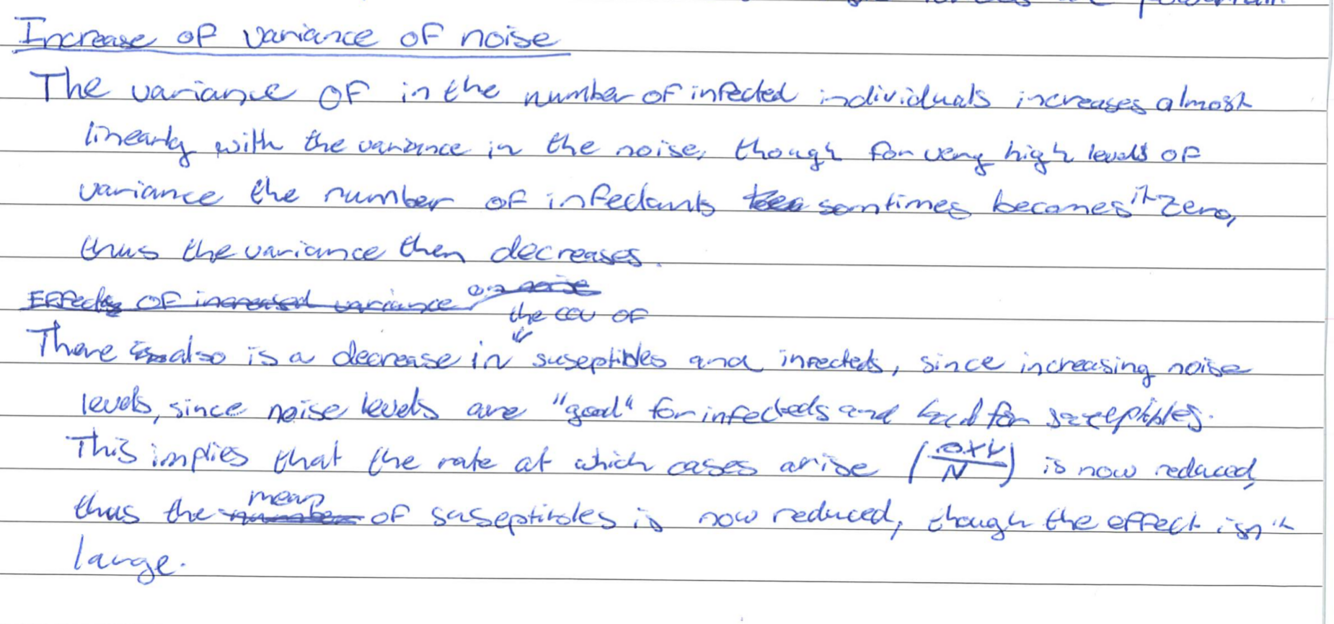 Increase of variance of noise
The variance of in the number of infected individuals increases almost
linearly with the variance in the noise, though for very high levels of
variance the number of infectants somtimes becomes it zero,
thus the variance then decreases.
Effects of increased variance on noise
the cov of
There is also is a decrease in suseptibles and infecteds, since increasing noise
levels, since noise levels are "good" for infecteds and bad for suseptibles.
This implies that the rate at which cases arise (βXY/N) is now reduced,
mean
thus the number of suseptibles is now reduced, though the effect isn't
large.